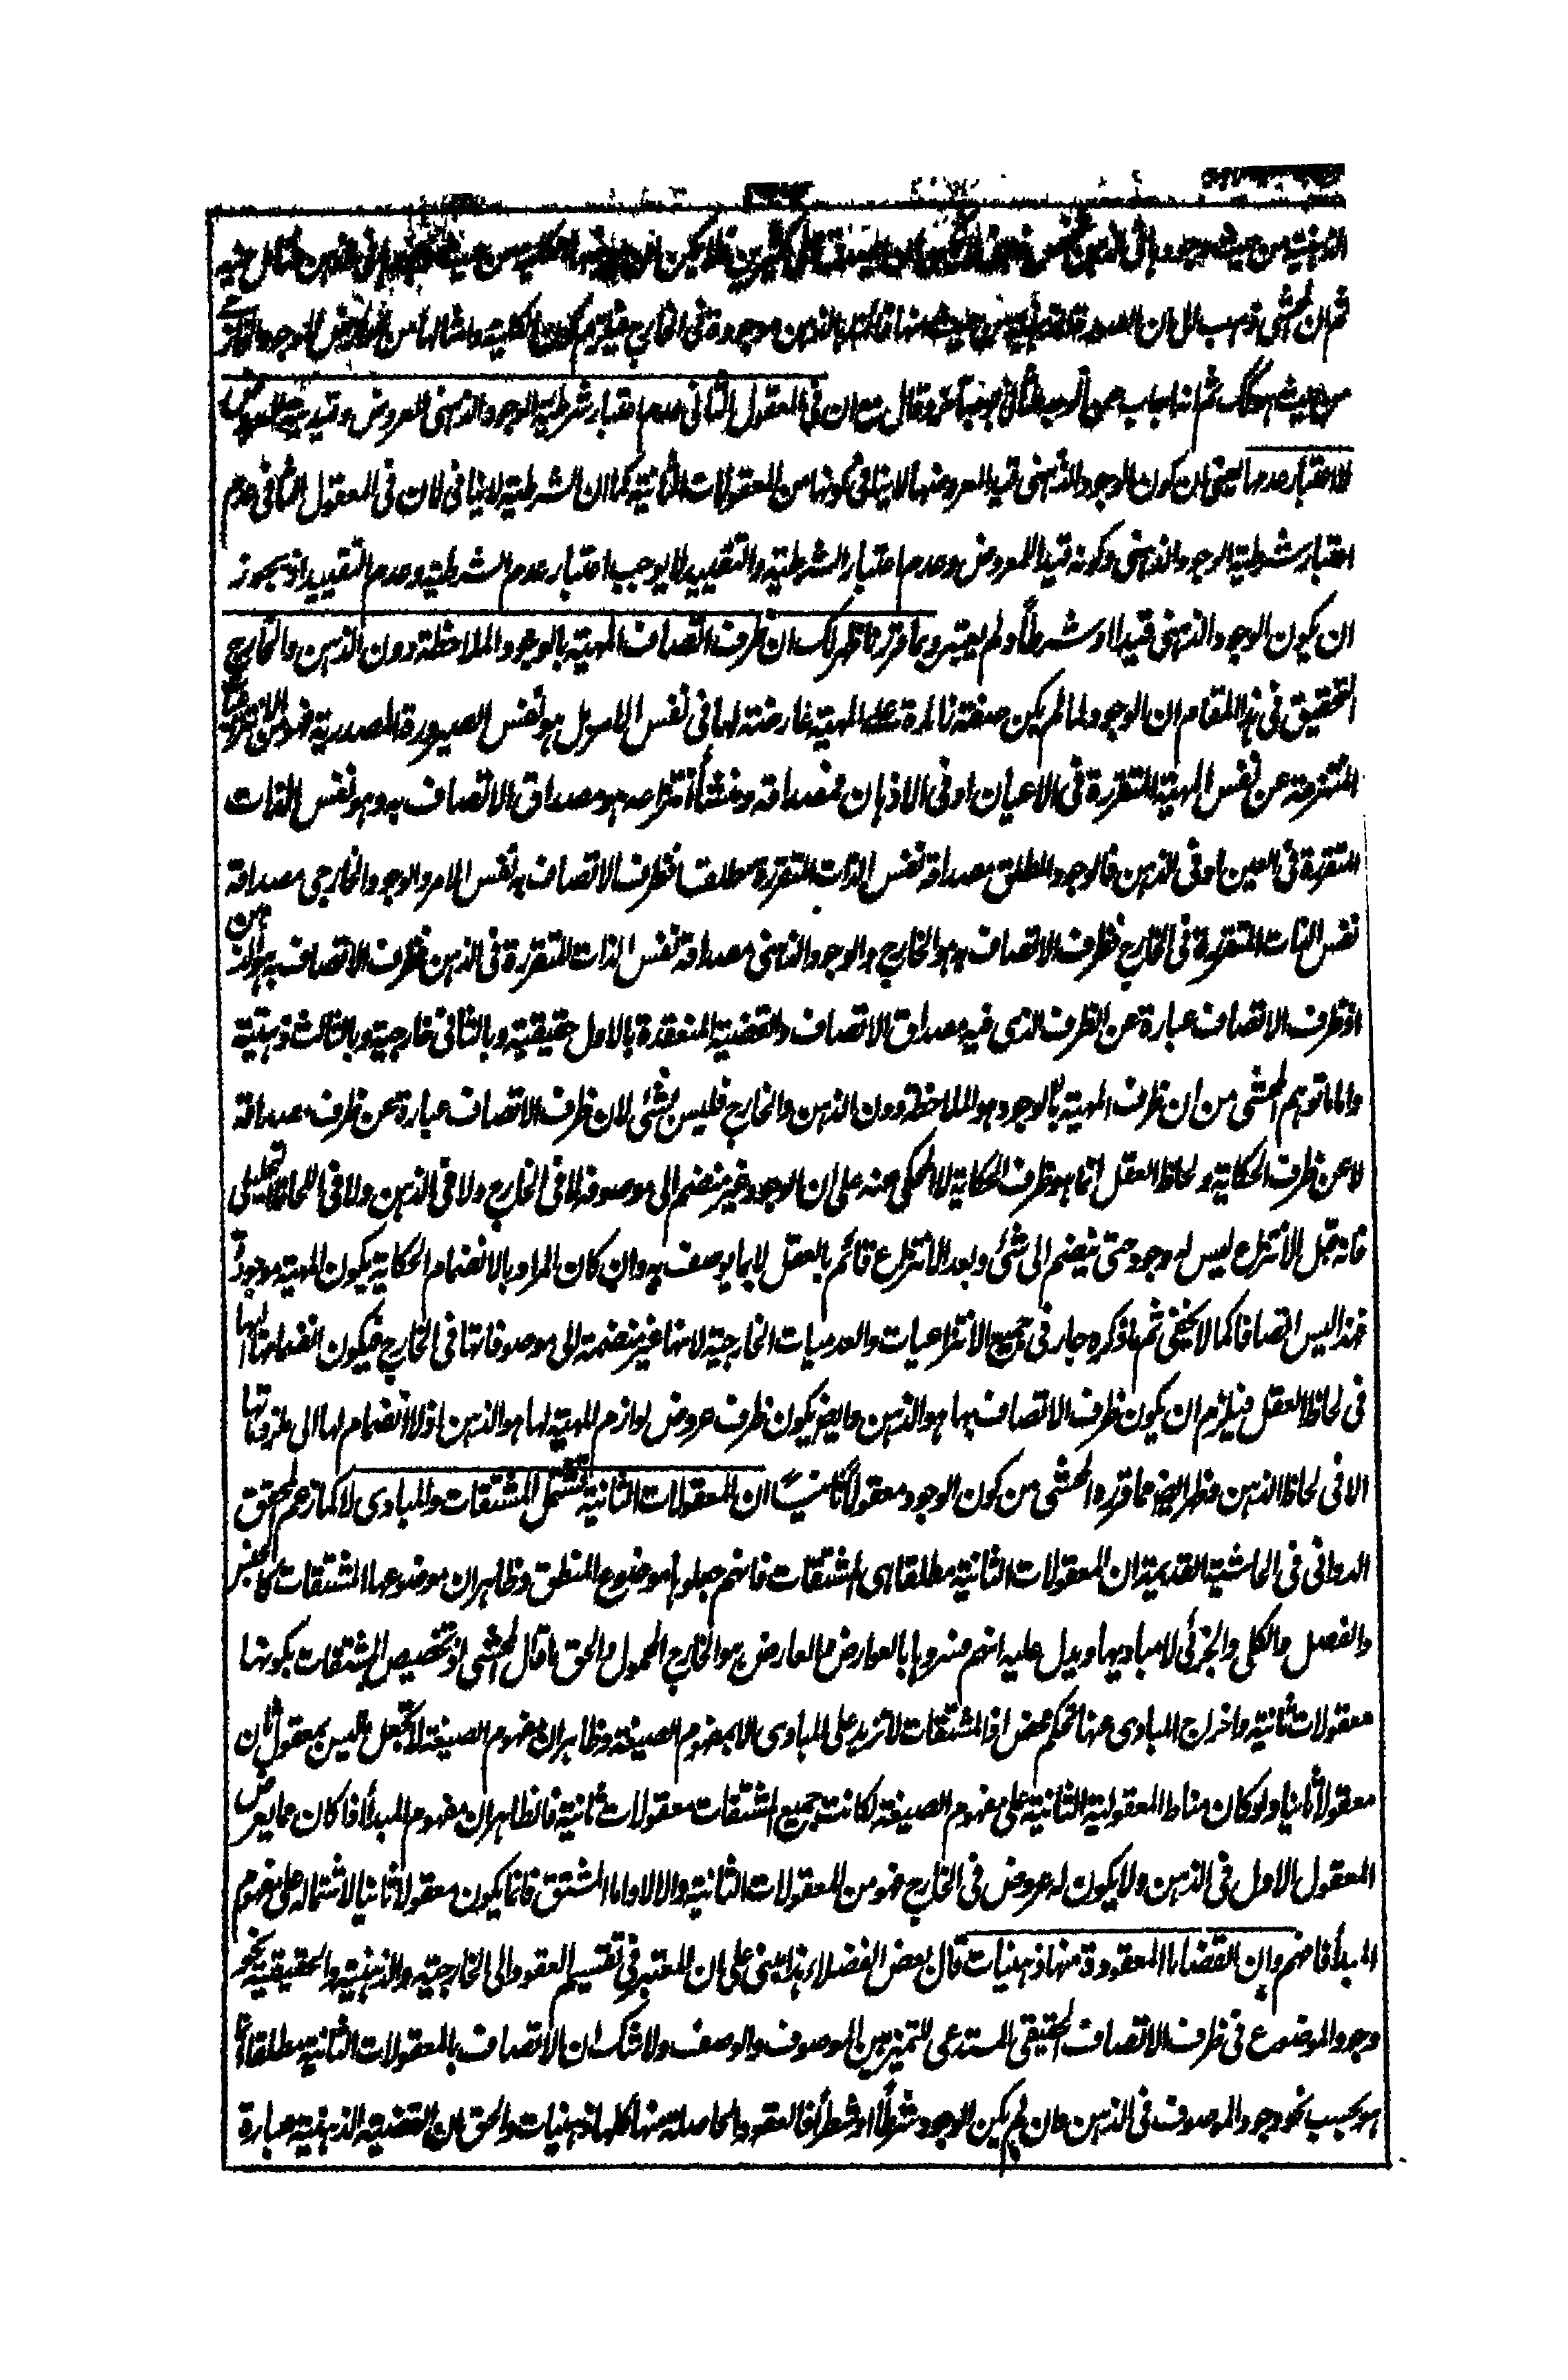 الذهنية من حيث وجودها فى الذهن
ثم ان المحشى ذهب الى ان الصورة من حيث انها قائمة بالذهن موجودة فى الخارج فيلزم كون الكلية وامثالها من العوارض
من حيث هو كك ثم انه اجاب عن وقال ان فى المعقول الثانى عدم اعتبار شرطية الوجود الذهنى للعروض وقيدية
لا اعتبار عدمها يعنى ان كون الوجود الذهنى قيد المعروضها لا ينافى كونها من المعقولات الثانية كما ان الشرطية لا ينافى لان فى المعقول الثانى عدم
اعتبار شرطية الوجود الذهنى وكونه قيدا للمعروض وعدم اعتبار الشرطية والتقييد لا يوجب اعتبار عدم الشرطية وعدم التقييد اذ يجوز
ان يكون الوجود الذهنى قيدا او شرطاً ولم يعتبر وبما قررنا ظهر لك ان ظرف اتصاف المهية بالوجود الملاحظة دون الذهن والخارج
التحقيق فى هذا المقام ان الوجود لما لم يكن صفة زائدة على المهية عارضة لها فى نفس الامر بل هو نفس الصيرورة المصدرية
المنتزعة عن نفس المهية المتقررة فى الاعيان او فى الاذهان فمصداقه ومنشأ انتزاعه هو مصداق الاتصاف به وهو نفس الذات
المتقررة فى العين او فى الذهن فالوجود المطلق مصداقه نفس الذات المتقررة مطلقا فظرف الاتصاف به نفس الامر والوجود الخارجى مصداقه
نفس الذات المتقررة فى الخارج فظرف الاتصاف به هو الخارج والوجود الذهنى مصداقه نفس الذات المتقررة فى الذهن فظرف الاتصاف به هو الذهن
اذ ظرف الاتصاف عبارة عن الظرف الذى فيه مصداق الاتصاف والقضية المنعقدة بالاول حقيقية وبالثانى خارجية وبالثالث ذهنية
واما ما توهم المحشى من ان ظرف المهية بالوجود هو الملاحظة دون الذهن والخارج فليس بشئ لان ظرف الاتصاف عبارة عن ظرف مصداقه
لا عن ظرف الحكاية ولحاظ العقل انما هو ظرف الحكاية لا المحكى عنه على ان الوجود غير منضم الى موصوفه لا فى الخارج ولا فى الذهن ولا فى اللحاظ التحليلى
فانه قبل الانتزاع ليس له وجود حتى ينضم الى شئ وبعد الانتزاع قائم بالعقل لا بما يوصف به وان كان المراد بالانضمام الحكاية يكون المهية موجودة
فهذا ليس اتصافا كما لا يخفى ثم ما ذكره جار فى جميع الانتزاعيات والعدميات الخارجية لانها غير منضمة الى موصوفاتها فى الخارج فيكون انضمامها اليها
فى لحاظ العقل فيلزم ان يكون ظرف الاتصاف بها هو الذهن وايضا يكون ظرف عروض لوازم المهية لها هو الذهن اذ لا انضمام لها الى ملزوماتها
الا فى لحاظ الذهن وظهر ايضا مما قرره المحشى من كون الوجود معقولاً ثانيا ان المعقولات الثانية تشمل المشتقات والمبادى لا كما زعم المحقق
الدوانى فى الحاشية القديمة ان المعقولات الثانية مطلقا هى المشتقات فانهم جعلوها موضوع المنطق وظاهر ان موضوعها المشتقات كالجنس
والفصل والكلى والجزئى لا مباديها ويدل عليه انهم فسروها بالعوارض والعارض هو الخارج المحمول والحق ما قال المحشى اذ تخصيص المشتقات بكونها
معقولات ثانية واخراج المبادى عنها تحكم محض اذ المشتقات لا تزيد على المبادى الا بمفهوم الصيغة وظاهر ان مفهوم الصيغة لا تجعل ما ليس بمعقول ثان
معقولاً ثانيا ولو كان مناط المعقولية الثانية على مفهوم الصيغة لكانت جميع المشتقات معقولات ثانية فالظاهر ان مفهوم المبدأ اذا كان مما يعرض
المعقول الاول فى الذهن ولا يكون له عروض فى الخارج فهو من المعقولات الثانية والا لا واما المشتق فانما يكون معقولا ثانيا لاشتماله على مفهوم
المبدأ فافهم وان القضايا المعقودة منها ذهنيات قال بعض الفضلاء هذا مبنى على ان المعتبر فى تقسيم العقود الى الخارجية والذهنية والحقيقية نحو
وجود الموضوع فى ظرف الاتصاف الحقيقى المستدعى للتميز بين الموصوف والوصف ولا شك ان الاتصاف بالمعقولات الثانية مطلقا
هو بحسب نحو وجود الموصوف فى الذهن وان لم يكن الوجود شرطاً او شطراً فالعقود الحاصلة منها كلها ذهنيات والحق ان القضية الذهنية عبارة